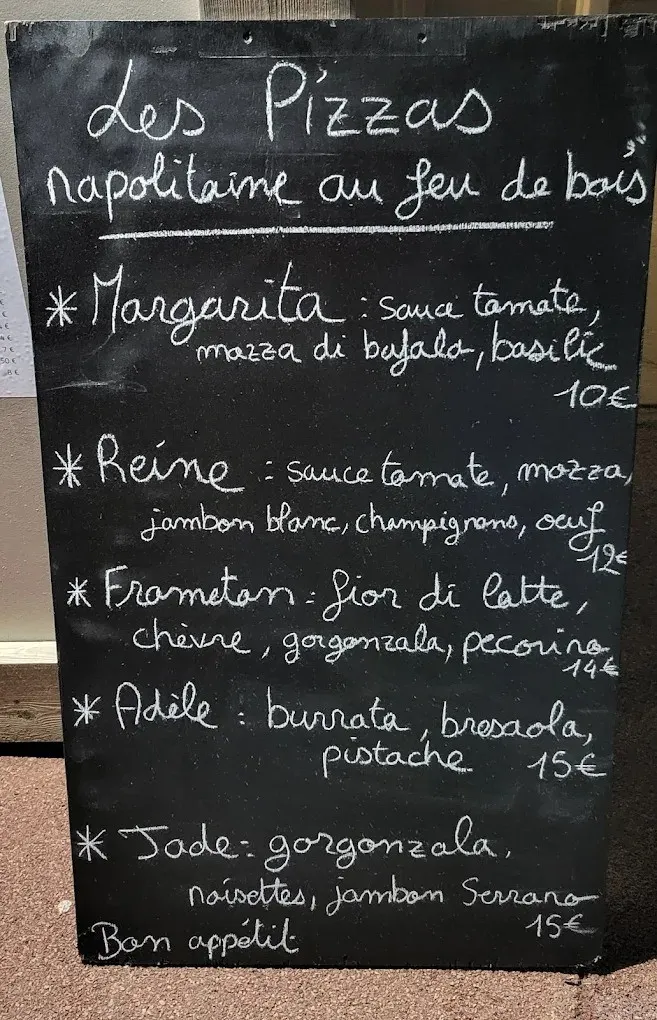 Les Pizzas
napolitaine au feu de bois
* Margarita : sauce tomate,
mozza di bufala, basilic
10€
* Reine : sauce tomate, mozza,
jambon blanc, champignons, oeuf
12€
* Frometon : fior di latte,
chèvre, gorgonzola, pecorino
14€
* Adèle : burrata, bresaola,
pistache 15€
* Jade : gorgonzola,
noisettes, jambon Serrano
15€
Bon appétit